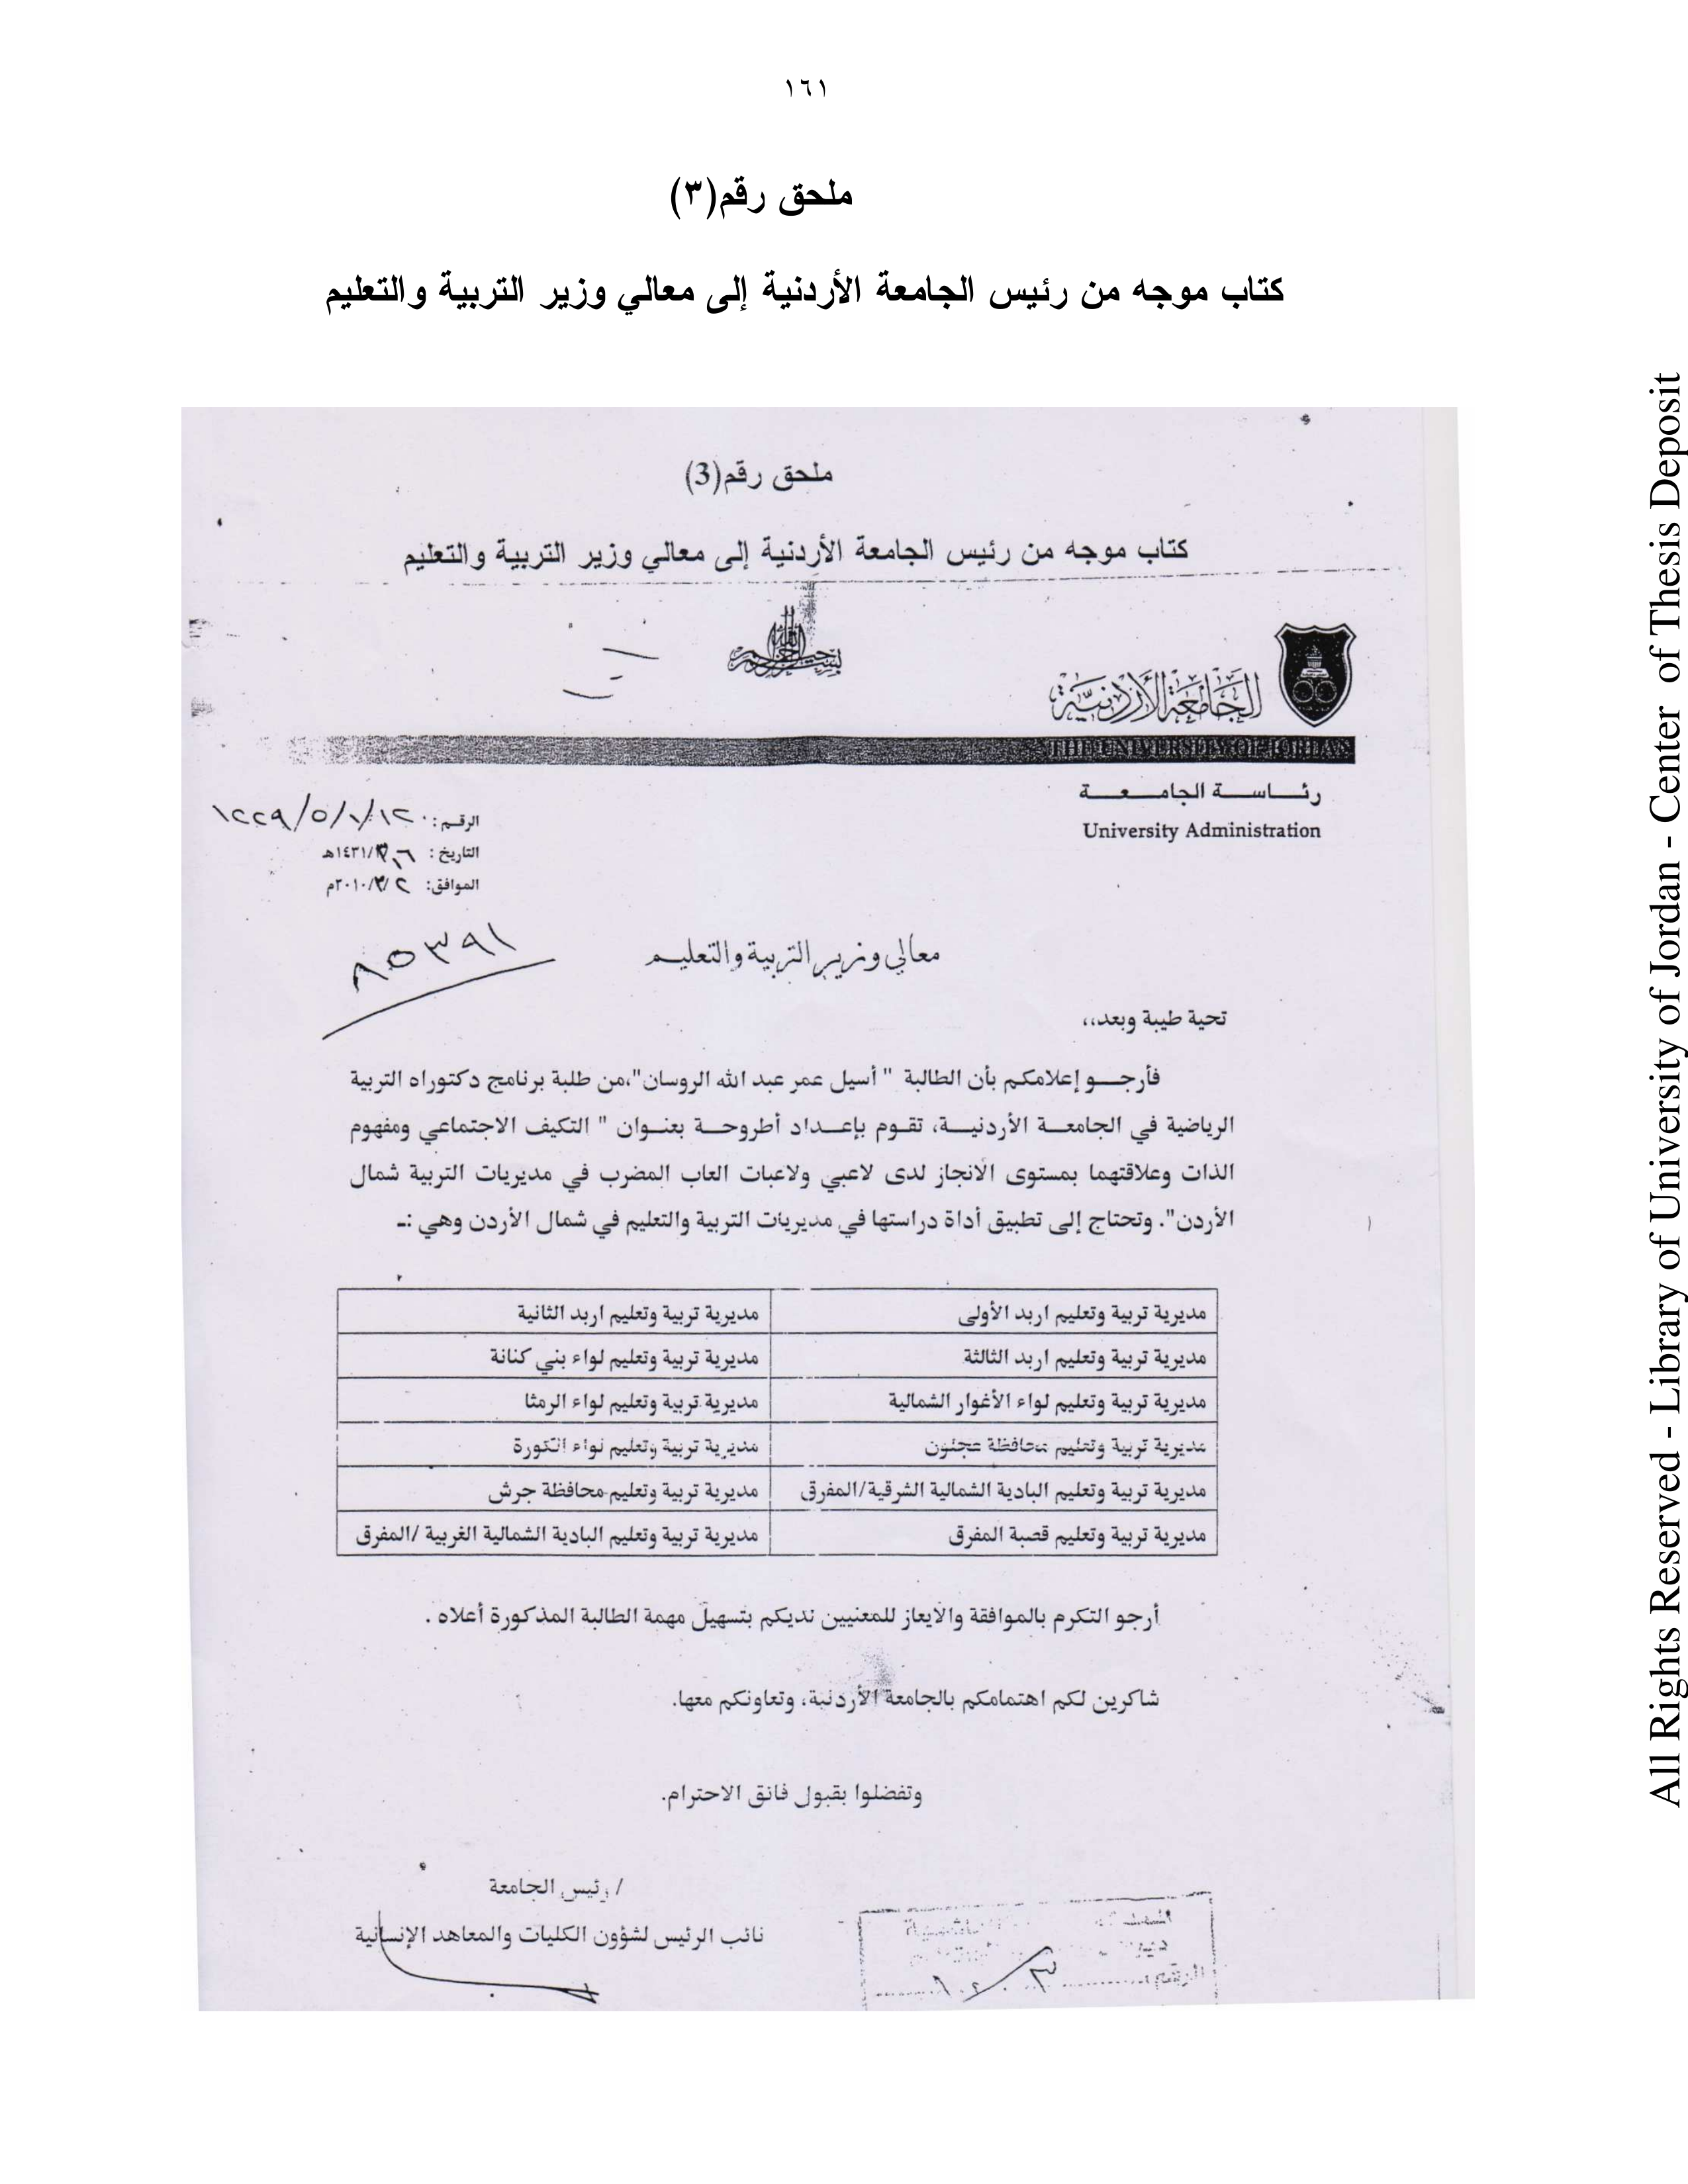 ١٦١
ملحق رقم(٣)
كتاب موجه من رئيس الجامعة الأردنية إلى معالي وزير التربية والتعليم
ملحق رقم(3)
كتاب موجه من رئيس الجامعة الأردنية إلى معالي وزير التربية والتعليم
بسم الله الرحمن الرحيم
الجامعة الأردنية
THE UNIVERSITY OF JORDAN
رئاسة الجامعة
University Administration
الرقم:
التاريخ: ١٤٣١/هـ
الموافق: ٢٠١٠/٣/٢م
٨٥٣٩١
معالي وزير التربية والتعليم
تحية طيبة وبعد،،
فأرجو إعلامكم بأن الطالبة " أسيل عمر عبد الله الروسان"،من طلبة برنامج دكتوراه التربية
الرياضية في الجامعة الأردنية، تقوم بإعداد أطروحة بعنوان " التكيف الاجتماعي ومفهوم
الذات وعلاقتهما بمستوى الانجاز لدى لاعبي ولاعبات العاب المضرب في مديريات التربية شمال
الأردن". وتحتاج إلى تطبيق أداة دراستها في مديريات التربية والتعليم في شمال الأردن وهي :ـ
مديرية تربية وتعليم اربد الأولى مديرية تربية وتعليم اربد الثانية
مديرية تربية وتعليم اربد الثالثة مديرية تربية وتعليم لواء بني كنانة
مديرية تربية وتعليم لواء الأغوار الشمالية مديرية تربية وتعليم لواء الرمثا
مديرية تربية وتعليم محافظة عجلون مديرية تربية وتعليم لواء الكورة
مديرية تربية وتعليم البادية الشمالية الشرقية/المفرق مديرية تربية وتعليم محافظة جرش
مديرية تربية وتعليم قصبة المفرق مديرية تربية وتعليم البادية الشمالية الغربية /المفرق
أرجو التكرم بالموافقة والايعاز للمعنيين لديكم بتسهيل مهمة الطالبة المذكورة أعلاه .
شاكرين لكم اهتمامكم بالجامعة الأردنية، وتعاونكم معها.
وتفضلوا بقبول فائق الاحترام.
/ رئيس الجامعة
نائب الرئيس لشؤون الكليات والمعاهد الإنسانية
All Rights Reserved - Library of University of Jordan - Center of Thesis Deposit